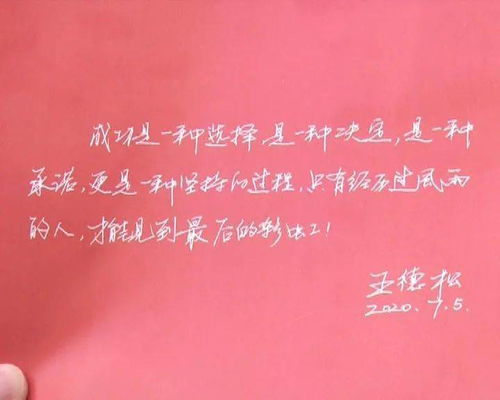 成功是一种选择,是一种决定,是一种
承诺,更是一种坚持的过程,只有经历过风雨
的人,才能见到最后的彩虹!
王德松
2020.7.5.